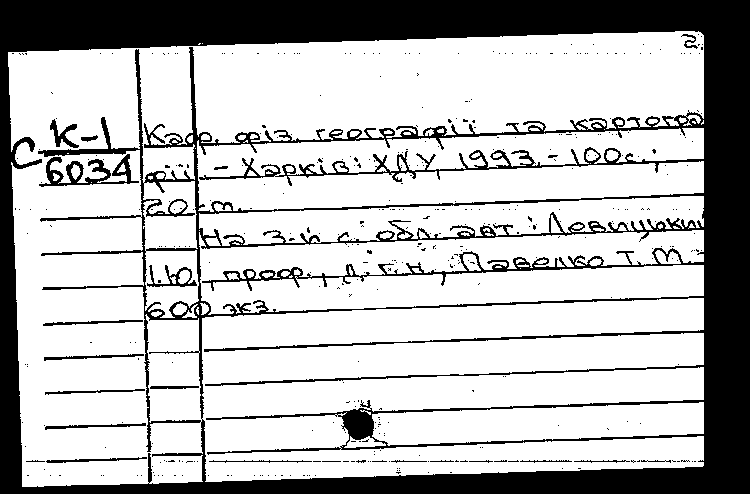 2.
С К-1
6034
Каф. фіз. географії та картогра
фії. - Харків: ХДУ, 1993. - 100с.;
20 см.
На 3-й с. обл. авт.: Левицький
І.Ю., проф., д.г.н., Павелко Т.М. -
600 экз.